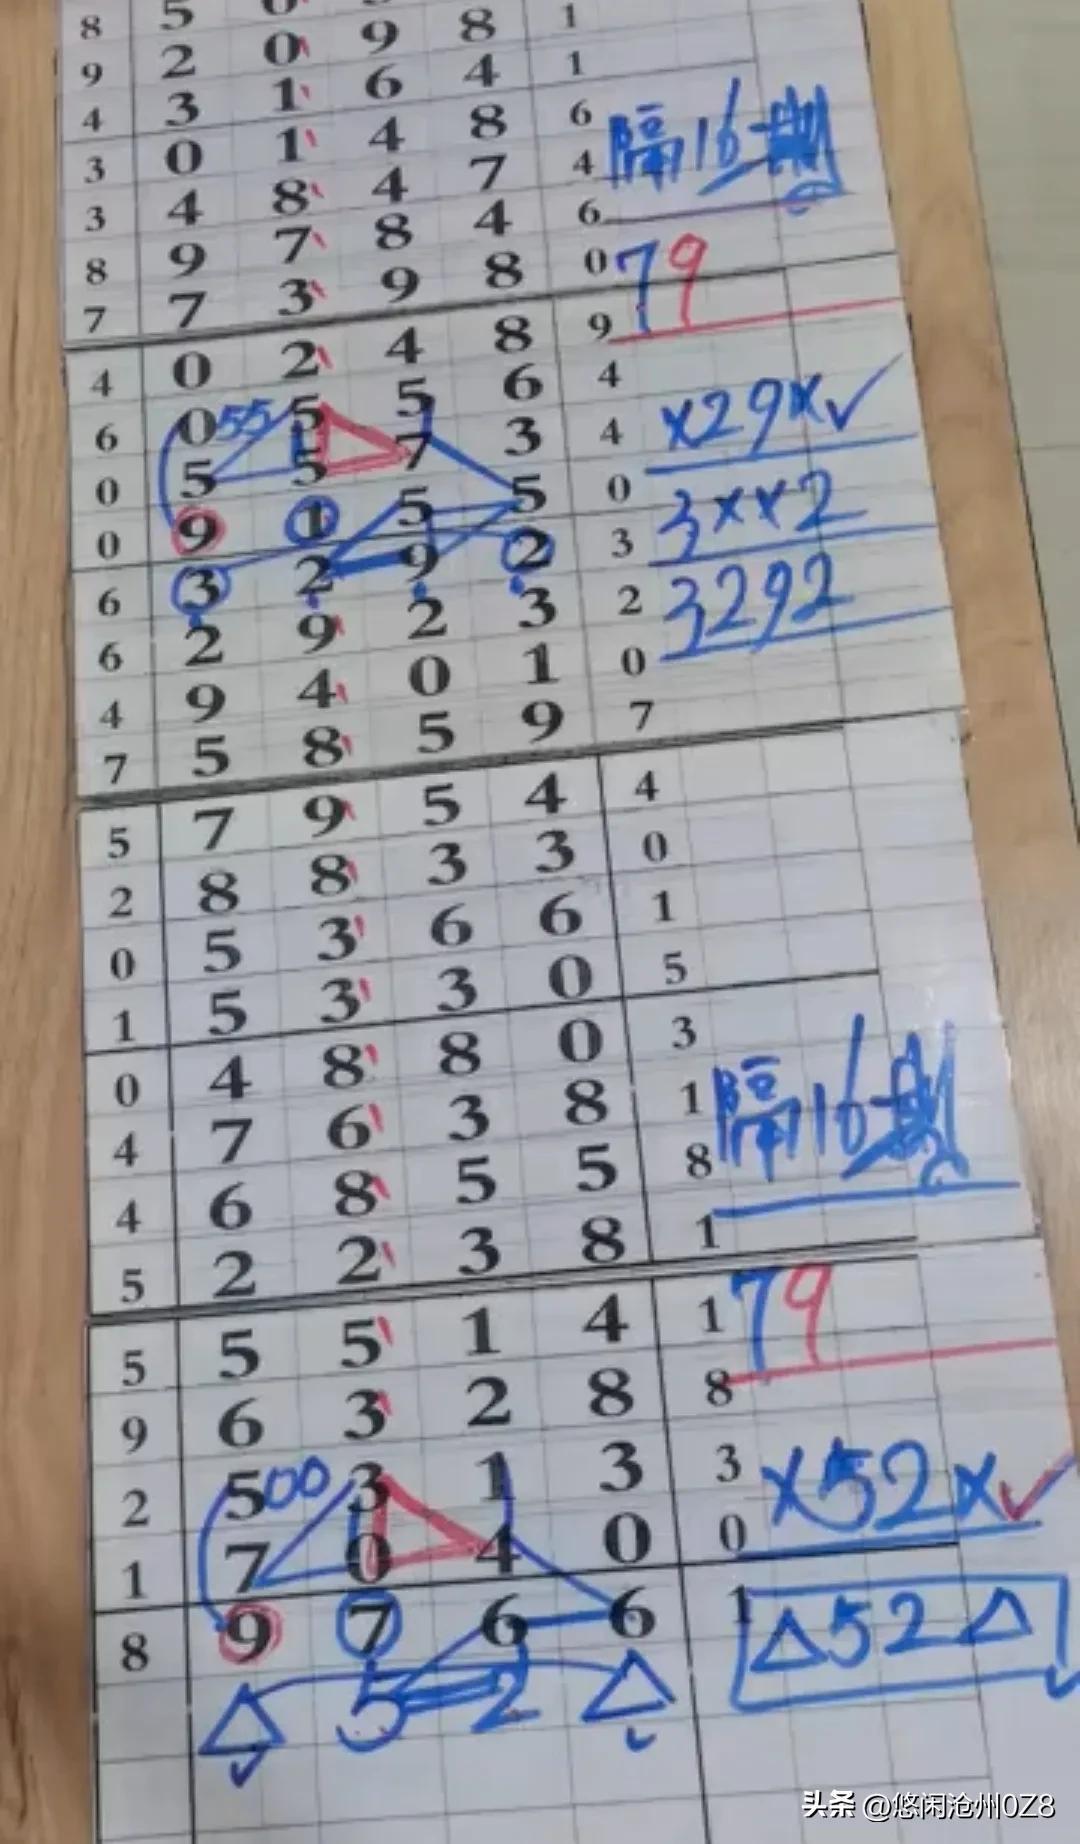 8 5 0 1
9 2 0 9 8 1
4 3 1 6 4 6
3 0 1 4 8 4 隔16期
3 4 8 4 7 6
8 9 7 8 4 0 79
7 7 3 9 8 9
4 0 2 4 8 4
6 0 55 5 5 6 4 ×29×✓
0 5 5 7 3 0
0 9 1 5 5 3 3××2
6 3 2 9 2 2 3292
6 2 9 2 3 0
4 9 4 0 1 7
7 5 8 5 9
5 7 9 5 4 4
2 8 8 3 3 0
0 5 3 6 6 1
1 5 3 3 0 5
0 4 8 8 0 3
4 7 6 3 8 1 隔16期
4 6 8 5 5 8
5 2 2 3 8 1
5 5 5 1 4 1 79
9 6 3 2 8 8
2 5 00 3 1 3 3 ×52×✓
1 7 0 4 0 0
8 9 7 6 6 1 △52△
△ 5 2 △
头条 @悠闲沧州0Z8